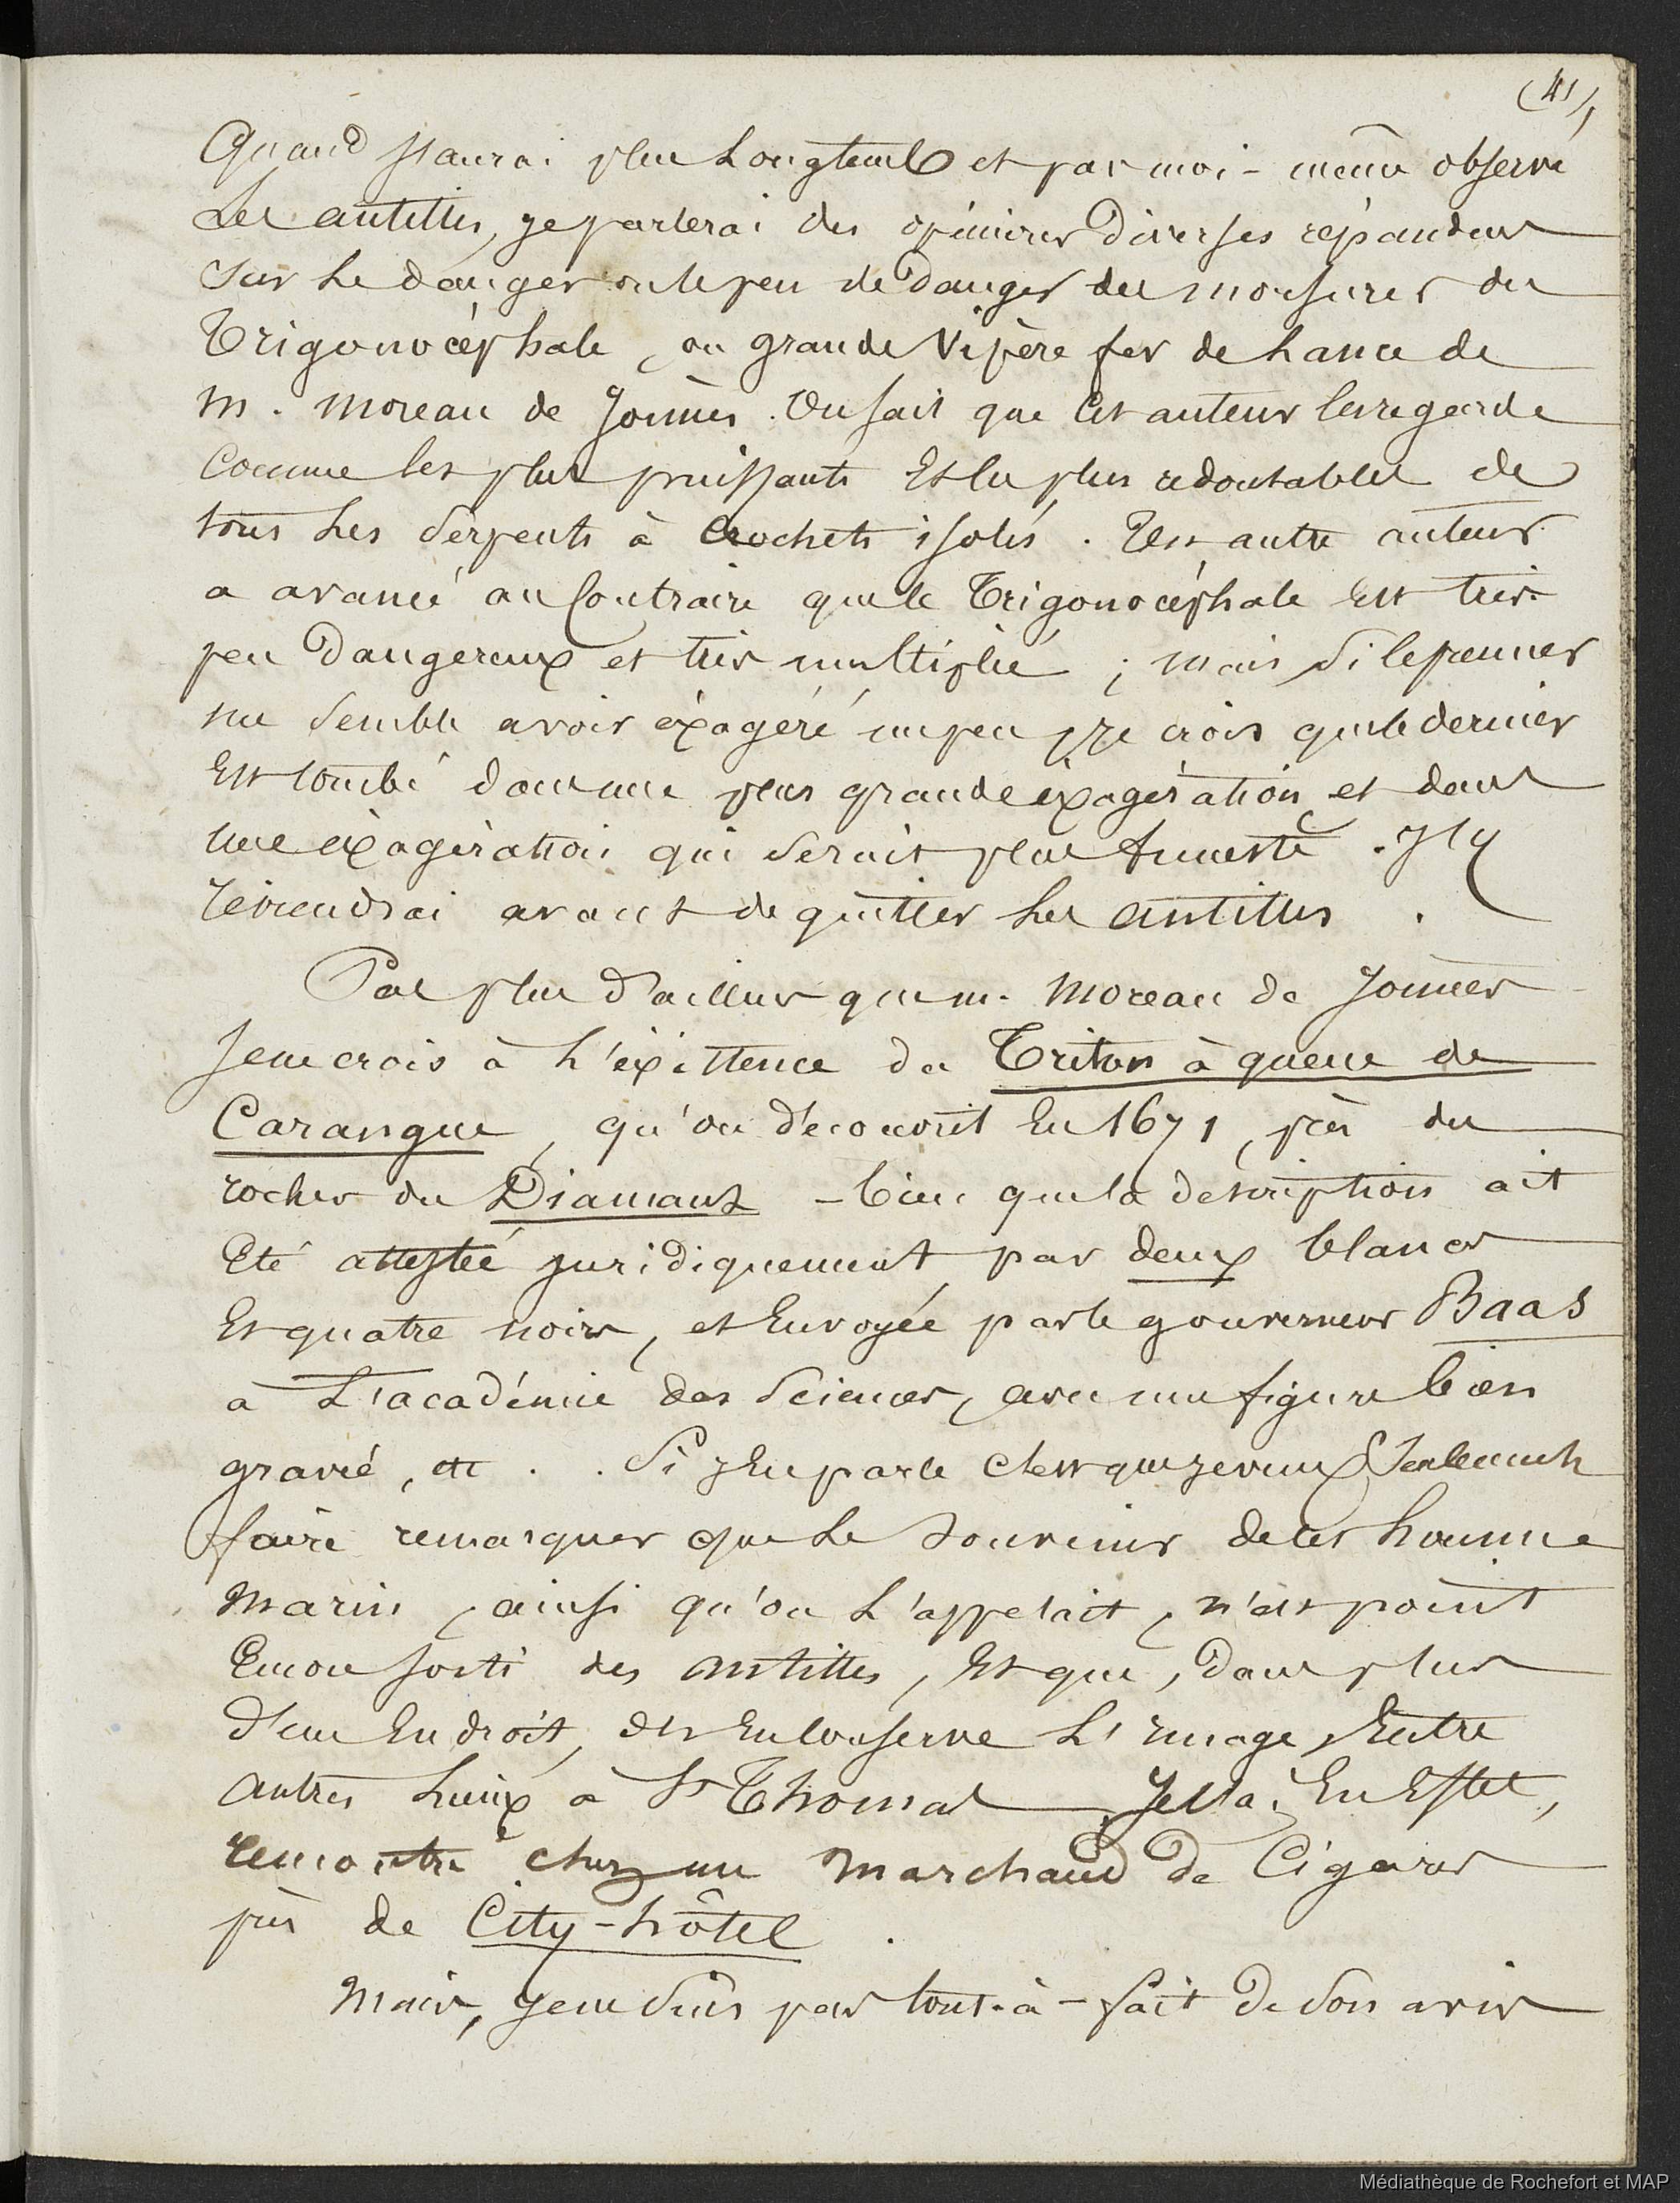 (41)
Quand j'aurai plus longtems et par moi-même observé
Les antilles, je parlerai des opinions diverses répandues
sur le danger ou le peu de danger des morsures du
Trigonocéphale, ou grande Vipère fer de lance de
M. Moreau de Jonnès. On sait que cet auteur les regarde
comme les plus puissants et les plus redoutables de
tous les serpents à crochets isolés. Un autre auteur
a avancé au contraire que le Trigonocéphale est très
peu dangereux et très multiplié ; mais si le premier
me semble avoir éxagéré un peu, je crois que le dernier
est tombé dans une plus grande éxagération et dans
une éxagération qui serait plus funeste. J'y
reviendrai avant de quitter les antilles.
Pas plus d'ailleurs que M. Moreau de Jonnès
je ne crois à l'éxistence du Triton à queue de
Carangue, qu'on découvrit en 1671, près du
rocher du Diamant - bien que la description ait
été attestée juridiquement par deux blancs
et quatre noirs, et envoyée par le gouverneur Baas
à L'académie des Sciences, avec une figure bien
gravée, etc.. Si j'en parle c'est que je veux seulement
faire remarquer que le souvenir de cet homme
marin, ainsi qu'on l'appelait, n'est point
encore sorti des antilles, et que, dans plus
d'un endroit, on en conserve l'image, entre
autres lieux à St Thomas. Je l'ai, en effet,
rencontré chez un marchand de Cigares
près de City-hôtel.
Mais, je ne suis pas tout-à-fait de son avis
Médiathèque de Rochefort et MAP